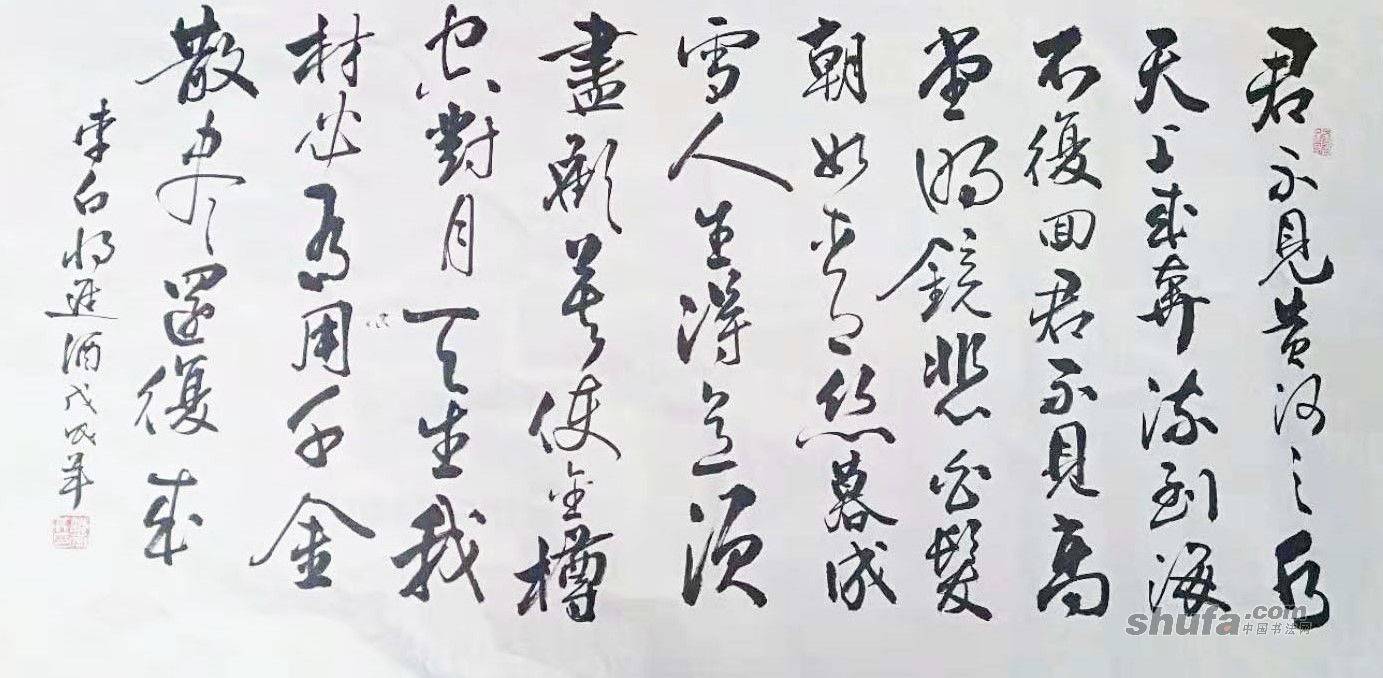 君不見黄河之水
天上来奔流到海
不復回君不見高
堂明鏡悲白髮
朝如青丝暮成
雪人生得意须
盡歡莫使金樽
空對月天生我
材必有用千金
散盡還復来
李白将進酒戊戌年
shufa.com
中国书法网